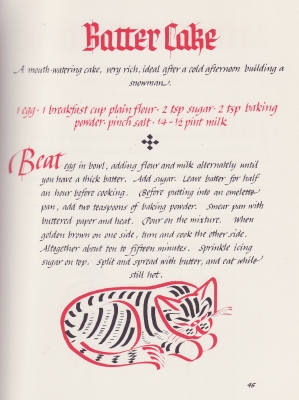 Batter Cake
A mouth-watering cake, very rich, ideal after a cold afternoon building a
snowman.
1 egg · 1 breakfast cup plain flour · 2 tsp sugar · 2 tsp baking
powder · pinch salt · ¼-½ pint milk
Beat egg in bowl, adding flour and milk alternately until
you have a thick batter. Add sugar. Leave batter for half
an hour before cooking. (Before putting into an omelette
pan, add two teaspoons of baking powder. Smear pan with
buttered paper and heat. Pour on the mixture. When
golden brown on one side, turn and cook the other side.
Altogether about ten to fifteen minutes. Sprinkle icing
sugar on top. Split and spread with butter, and eat while
still hot.
45